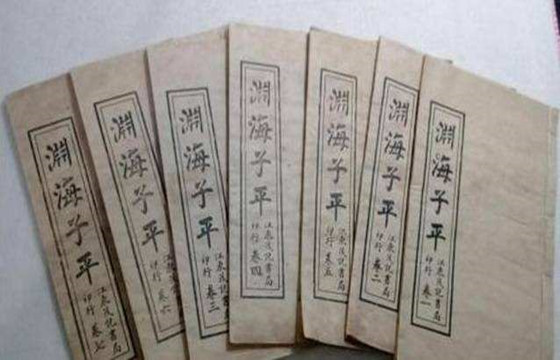 淵海子平
江東茂記書局
印行 卷一
淵海子平
江東茂記書局
印行 卷二
淵海子平
江東茂記書局
印行 卷五
淵海子平
江東茂記書局
印行 卷四
淵海子平
江東茂記書局
印行 卷三
淵海子平
江東茂記書局
印行 卷六
淵海子平
江東茂記書局
印行 卷七